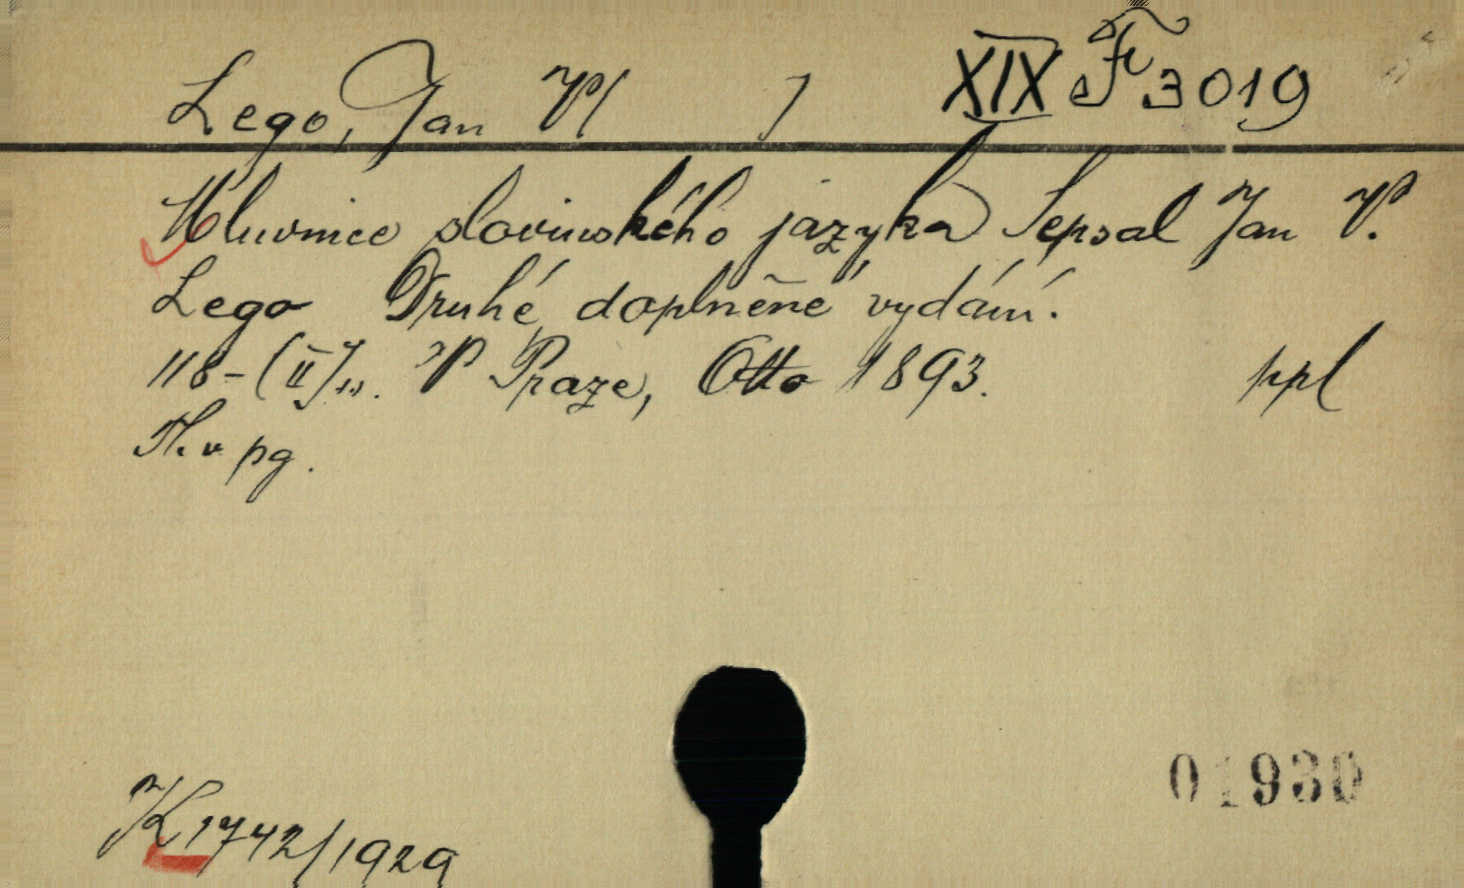 Lego, Jan V[ ] XIX F 3019
Mluvnice slovinského jazyka Sepsal Jan V.
Lego Druhé, doplněné vydání.
118-(II) s. V Praze, Otto 1893. ppl
Tl. v pg.
K 1742/1929
01930